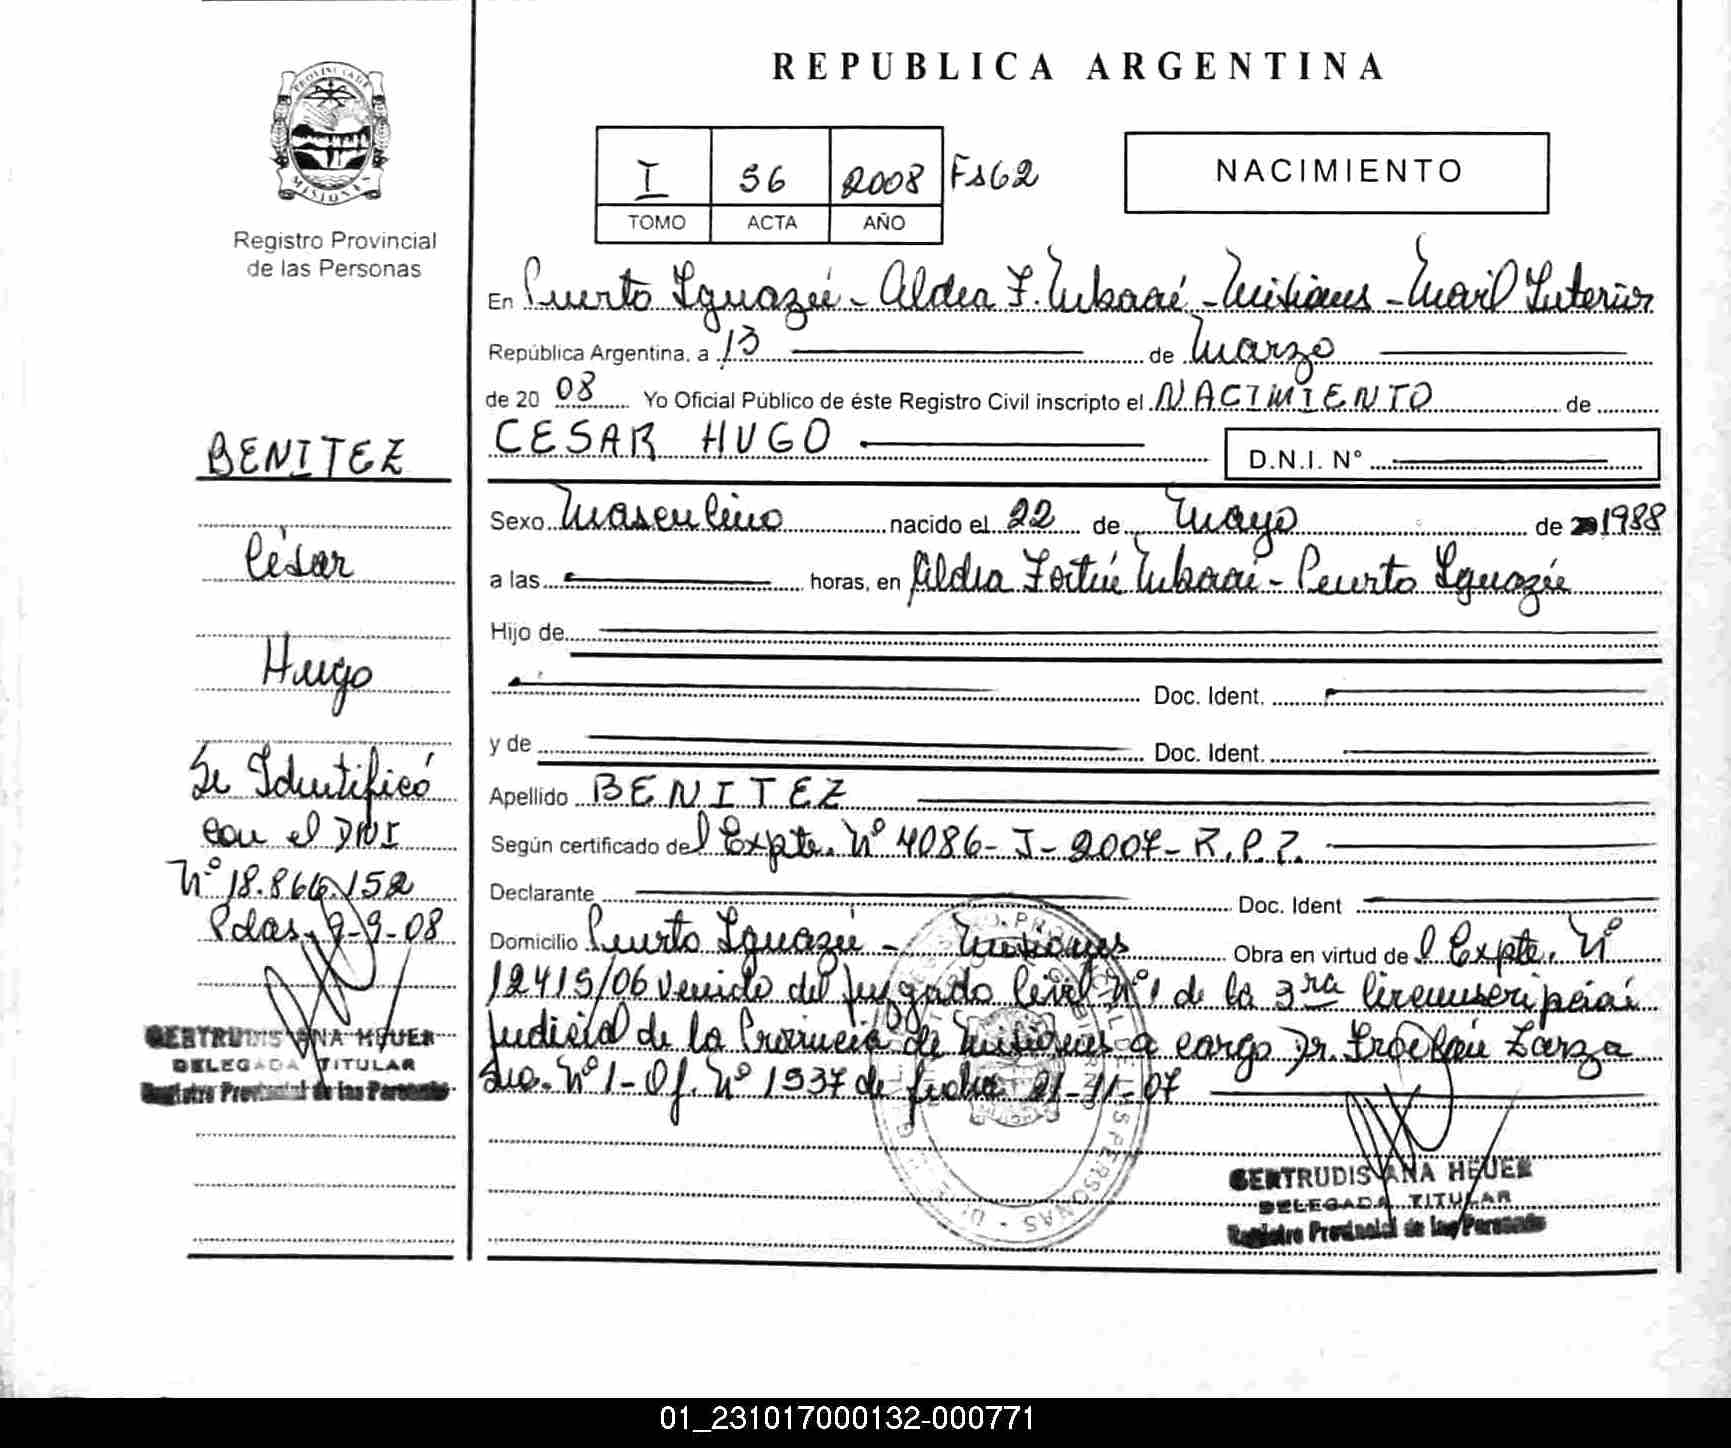 REPUBLICA ARGENTINA
PROVINCIA DE
MISIONES
Registro Provincial
de las Personas
I 56 2008 Fs62
TOMO ACTA AÑO
NACIMIENTO
En Puerto Iguazú - Aldea F. Mbororé - Misiones - Movil Interior
República Argentina, a 13 de Marzo
de 20 08 Yo Oficial Público de éste Registro Civil inscripto el NACIMIENTO de
CESAR HUGO
D.N.I. N°
Sexo Masculino nacido el 22 de Mayo de 1988
a las horas, en Aldea Fortín Mbororé - Puerto Iguazú
Hijo de
Doc. Ident.
y de Doc. Ident.
Apellido BENITEZ
Según certificado del Expte. Nº 4086-J-2007-R.P.P.
Declarante Doc. Ident
Domicilio Puerto Iguazú - Misiones Obra en virtud del Expte. Nº
12415/06 venido del Juzgado Civil Nº1 de la 3ra Circunscripción
Judicial de la Provincia de Misiones a cargo Dr. Froilán Zarza
Sec. Nº1 - Of. Nº 1937 de fecha 21-11-07
GERTRUDIS ANA HEUER
DELEGADA TITULAR
Registro Provincial de las Personas
BENITEZ
César
Hugo
Se Identificó
con el DNI
Nº 18.866.152
Pdas, 9-9-08
GERTRUDIS ANA HEUER
DELEGADA TITULAR
Registro Provincial de las Personas
01_231017000132-000771